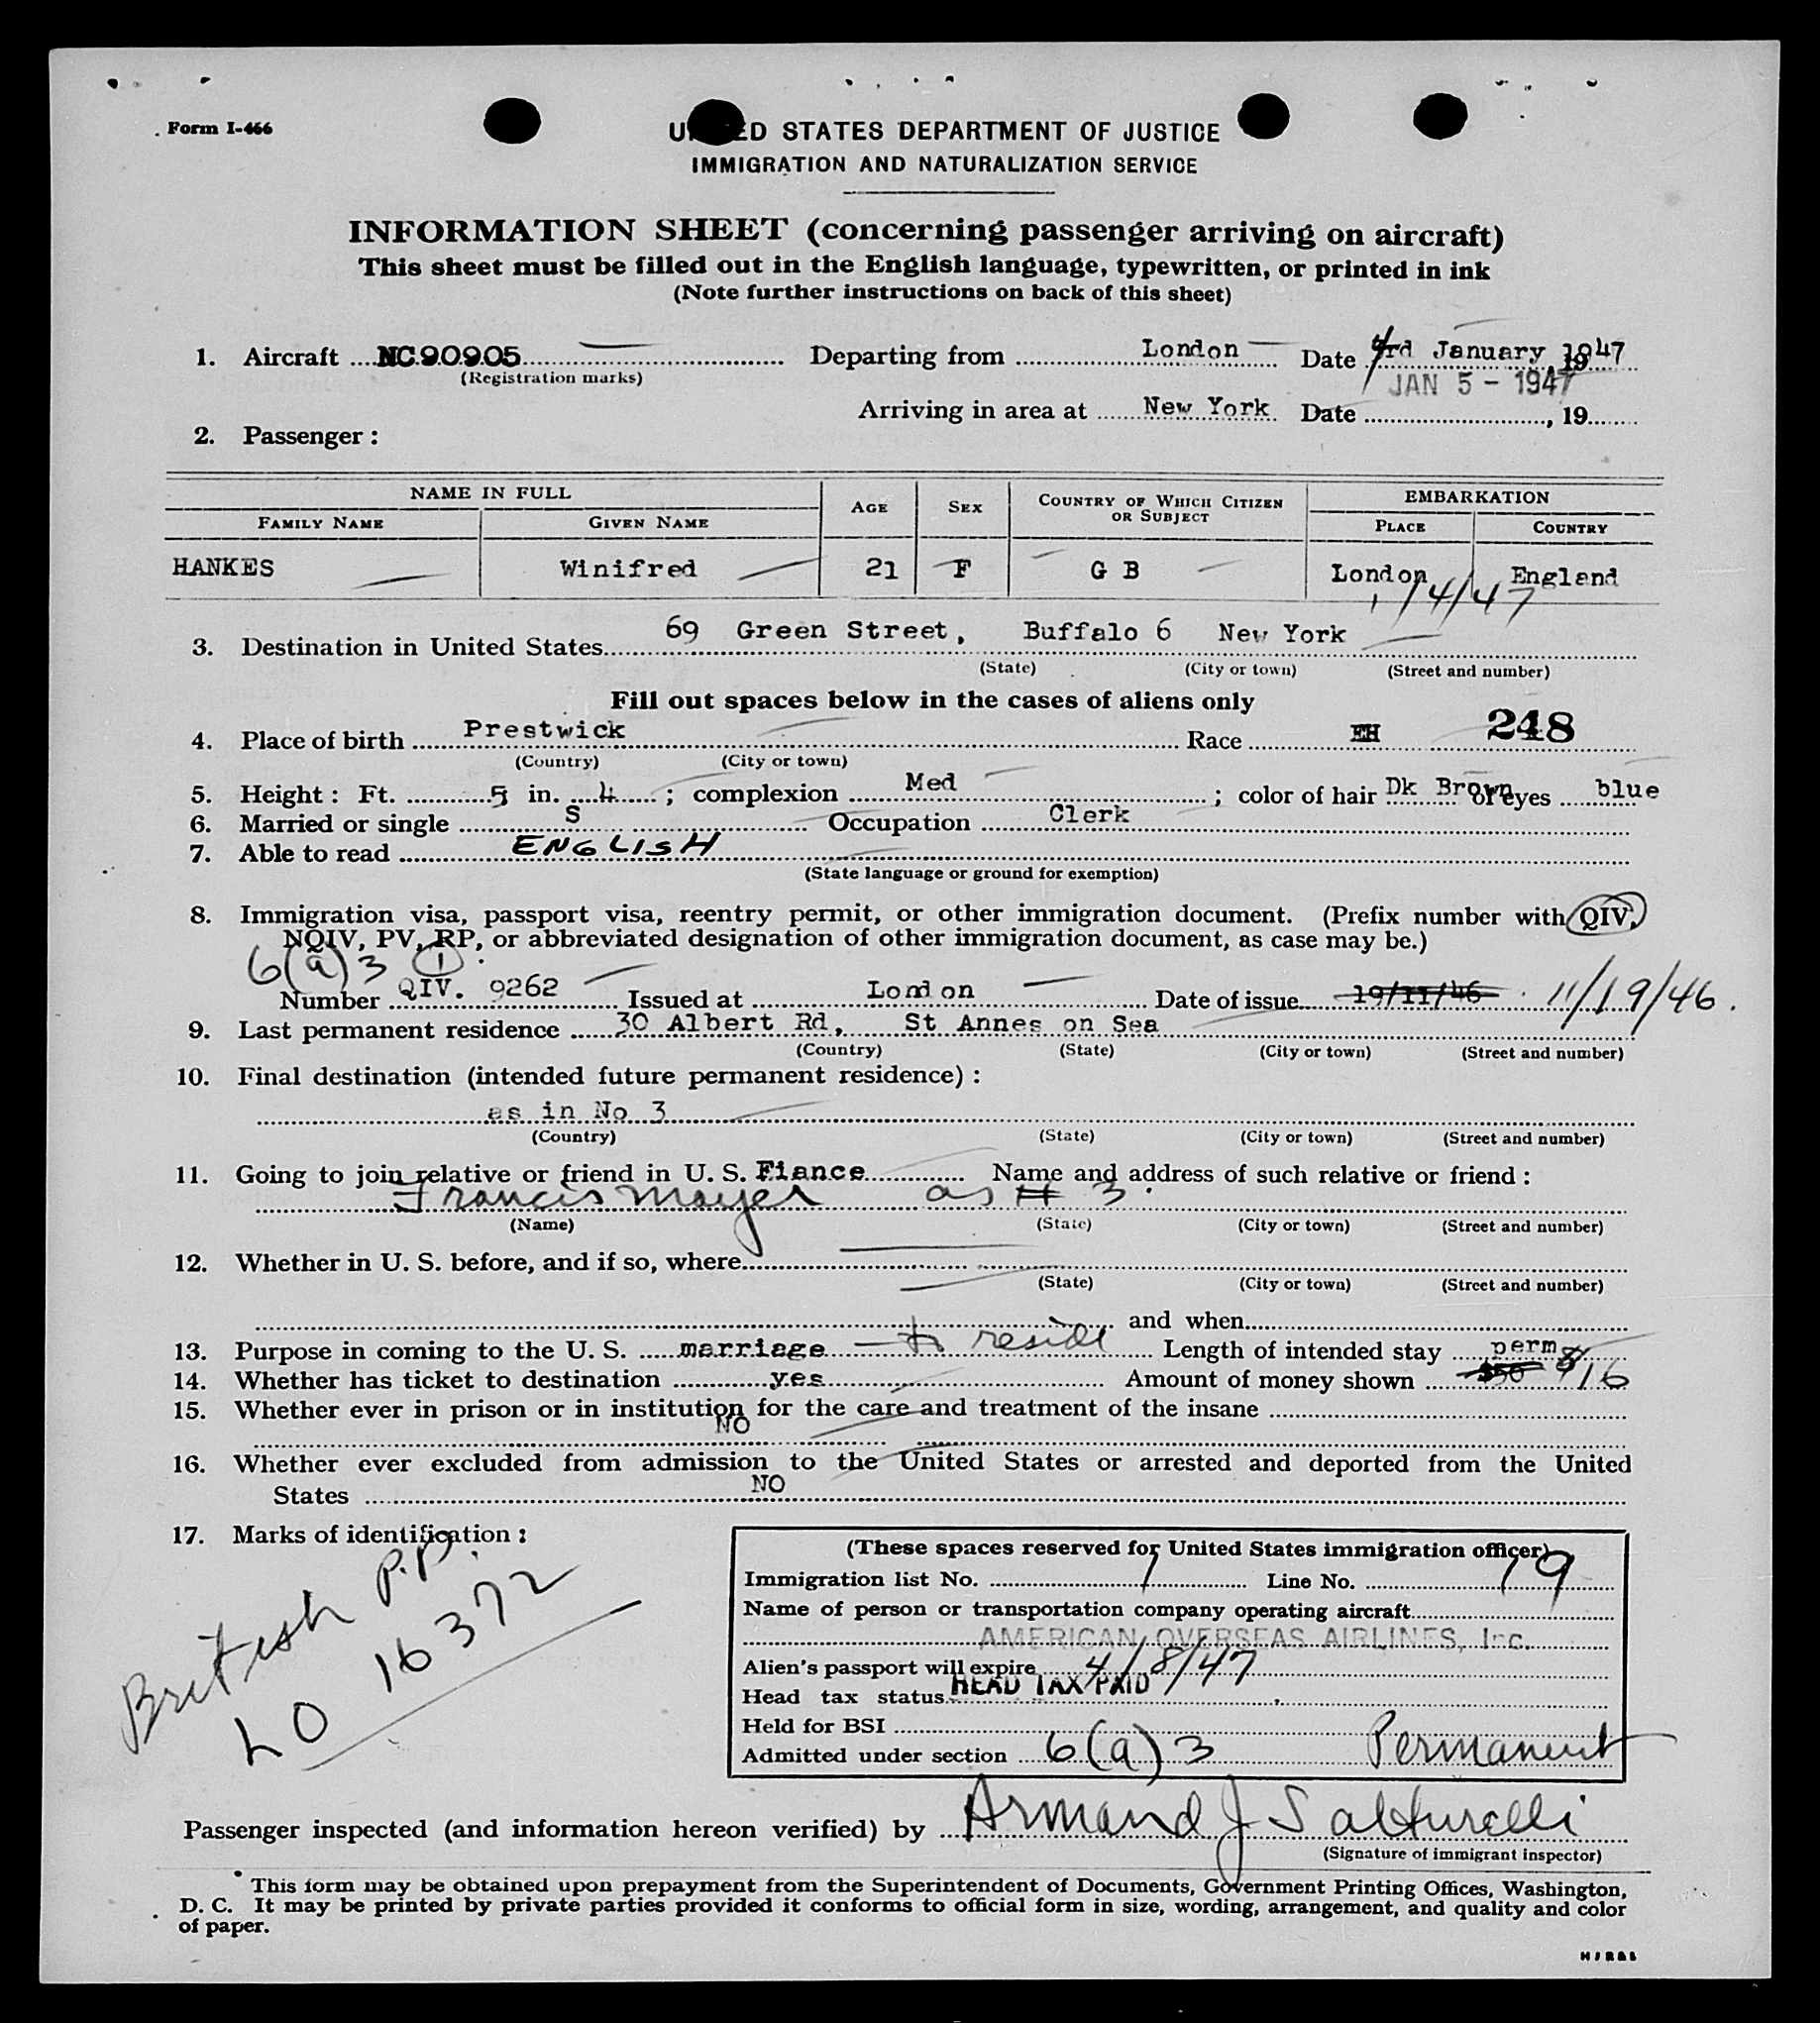 Form I-466
UNITED STATES DEPARTMENT OF JUSTICE
IMMIGRATION AND NATURALIZATION SERVICE
INFORMATION SHEET (concerning passenger arriving on aircraft)
This sheet must be filled out in the English language, typewritten, or printed in ink
(Note further instructions on back of this sheet)
1. Aircraft NC90905 Departing from London Date 4rd January, 1947
(Registration marks)
JAN 5 - 1947
Arriving in area at New York Date , 19
2. Passenger :
NAME IN FULL AGE SEX COUNTRY OF WHICH CITIZEN OR SUBJECT EMBARKATION
FAMILY NAME GIVEN NAME PLACE COUNTRY
HANKES Winifred 21 F G B London England
1/4/47
3. Destination in United States 69 Green Street, Buffalo 6 New York
(State) (City or town) (Street and number)
Fill out spaces below in the cases of aliens only
4. Place of birth Prestwick Race 248
(Country) (City or town)
5. Height : Ft. 5 in. 4 ; complexion Med ; color of hair Dk Brown of eyes blue
6. Married or single S Occupation Clerk
7. Able to read ENGLISH
(State language or ground for exemption)
8. Immigration visa, passport visa, reentry permit, or other immigration document. (Prefix number with QIV,
NQIV, PV, RP, or abbreviated designation of other immigration document, as case may be.)
6(a)3 1
Number QIV. 9262 Issued at London Date of issue 19/11/46 11/19/46.
9. Last permanent residence 30 Albert Rd, St Annes on Sea
(Country) (State) (City or town) (Street and number)
10. Final destination (intended future permanent residence) :
as in No 3
(Country) (State) (City or town) (Street and number)
11. Going to join relative or friend in U. S. Fiance Name and address of such relative or friend :
Francis Mayer as # 3.
(Name) (State) (City or town) (Street and number)
12. Whether in U. S. before, and if so, where
(State) (City or town) (Street and number)
and when
13. Purpose in coming to the U. S. marriage – to reside Length of intended stay perm
14. Whether has ticket to destination yes Amount of money shown $50 $16
15. Whether ever in prison or in institution for the care and treatment of the insane
NO
16. Whether ever excluded from admission to the United States or arrested and deported from the United
States NO
17. Marks of identification :
British P.P.
LO 16372
(These spaces reserved for United States immigration officer)
Immigration list No. 1 Line No. 19
Name of person or transportation company operating aircraft
AMERICAN OVERSEAS AIRLINES, Inc.
Alien's passport will expire 4/8/47
Head tax status HEAD TAX PAID
Held for BSI
Admitted under section 6(a)3 Permanent
Passenger inspected (and information hereon verified) by Armand J Salturelli
(Signature of immigrant inspector)
This form may be obtained upon prepayment from the Superintendent of Documents, Government Printing Offices, Washington,
D. C. It may be printed by private parties provided it conforms to official form in size, wording, arrangement, and quality and color
of paper.